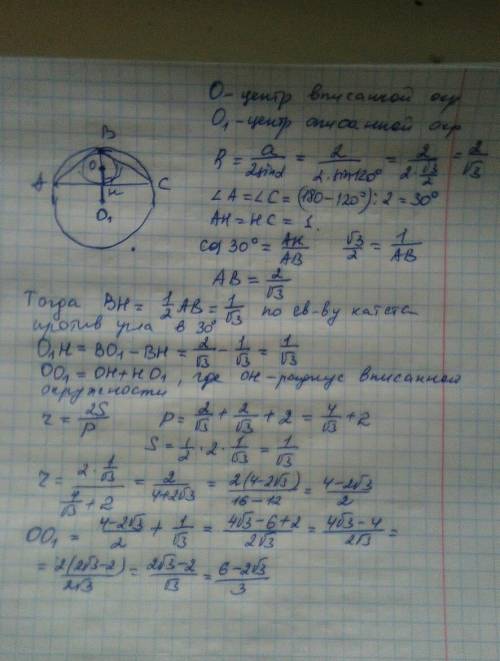 O - центр вписанной окр
O₁ - центр описанной окр
B
O
A
H
C
O₁
R = a/(2sinα) = 2/(2·sin120°) = 2/(2·√3/2) = 2/√3
∠A = ∠C = (180 - 120°) : 2 = 30°
AH = HC = 1.
cos 30° = AH/AB √3/2 = 1/AB
AB = 2/√3
Тогда BH = 1/2 AB = 1/√3 по св-ву катета
против угла в 30°
O₁H = BO₁ - BH = 2/√3 - 1/√3 = 1/√3
OO₁ = OH + HO₁, где OH - радиус вписанной
окружности
r = 2S/P P = 2/√3 + 2/√3 + 2 = 4/√3 + 2
S = 1/2 · 2 · 1/√3 = 1/√3
r = (2 · 1/√3)/(4/√3 + 2) = 2/(4+2√3) = 2(4-2√3)/(16-12) = (4-2√3)/2
OO₁ = (4-2√3)/2 + 1/√3 = (4√3-6+2)/(2√3) = (4√3-4)/(2√3) =
= 2(2√3-2)/(2√3) = (2√3-2)/√3 = (6-2√3)/3